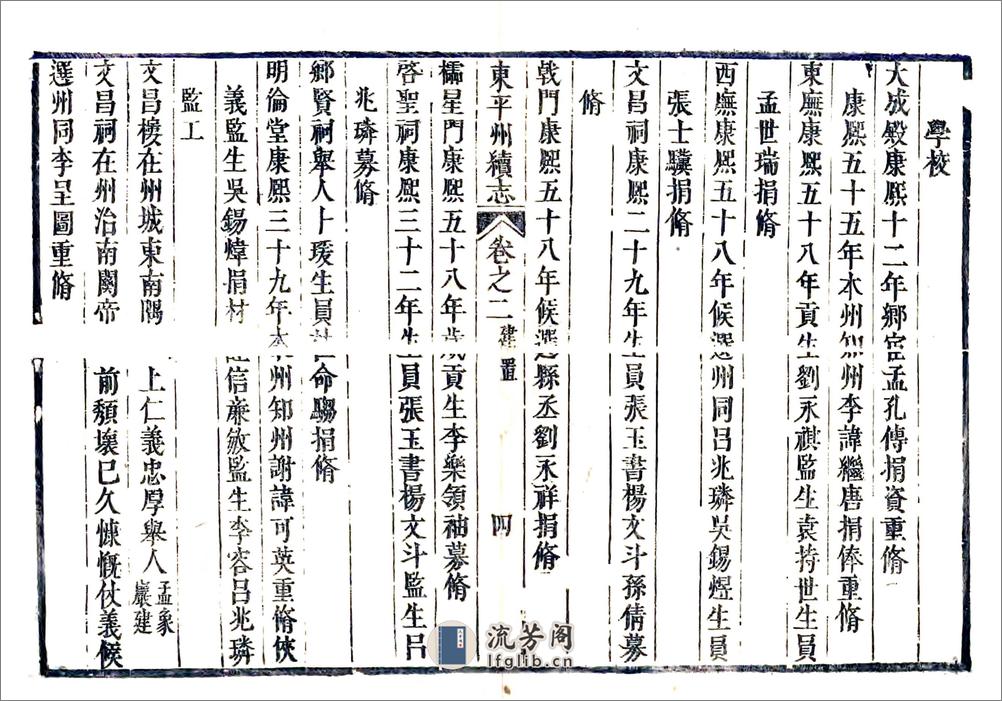 學校
大成殿康熙十二年鄉宦孟孔傳捐資重脩
康熙五十五年本州知州李諱繼唐捐俸重脩
東廡康熙五十八年貢生劉永祺監生袁持世生員
孟世瑞捐脩
西廡康熙五十八年候選州同呂兆璘吳錫煜生員
張士驥捐脩
文昌祠康熙二十九年生員張玉書楊文斗孫倩募
脩
戟門康熙五十八年候選縣丞劉永祥捐脩
東平州續志 卷之二 建置 四
櫺星門康熙五十八年歲貢生李樂領袖募脩
啓聖祠康熙三十二年生員張玉書楊文斗監生呂
兆璘募脩
鄉賢祠舉人卜瑗生員 命騶捐脩
明倫堂康熙三十九年本州知州謝諱可英重脩俠
義監生吳錫煒捐材 信亷敏監生李容呂兆璘
監工
文昌樓在州城東南隅上仁義忠厚舉人孟象巖建
文昌祠在州治南關帝 前頹壞已久慷慨仗義候
選州同李呈圖重脩
流芳阁
lfglib.cn